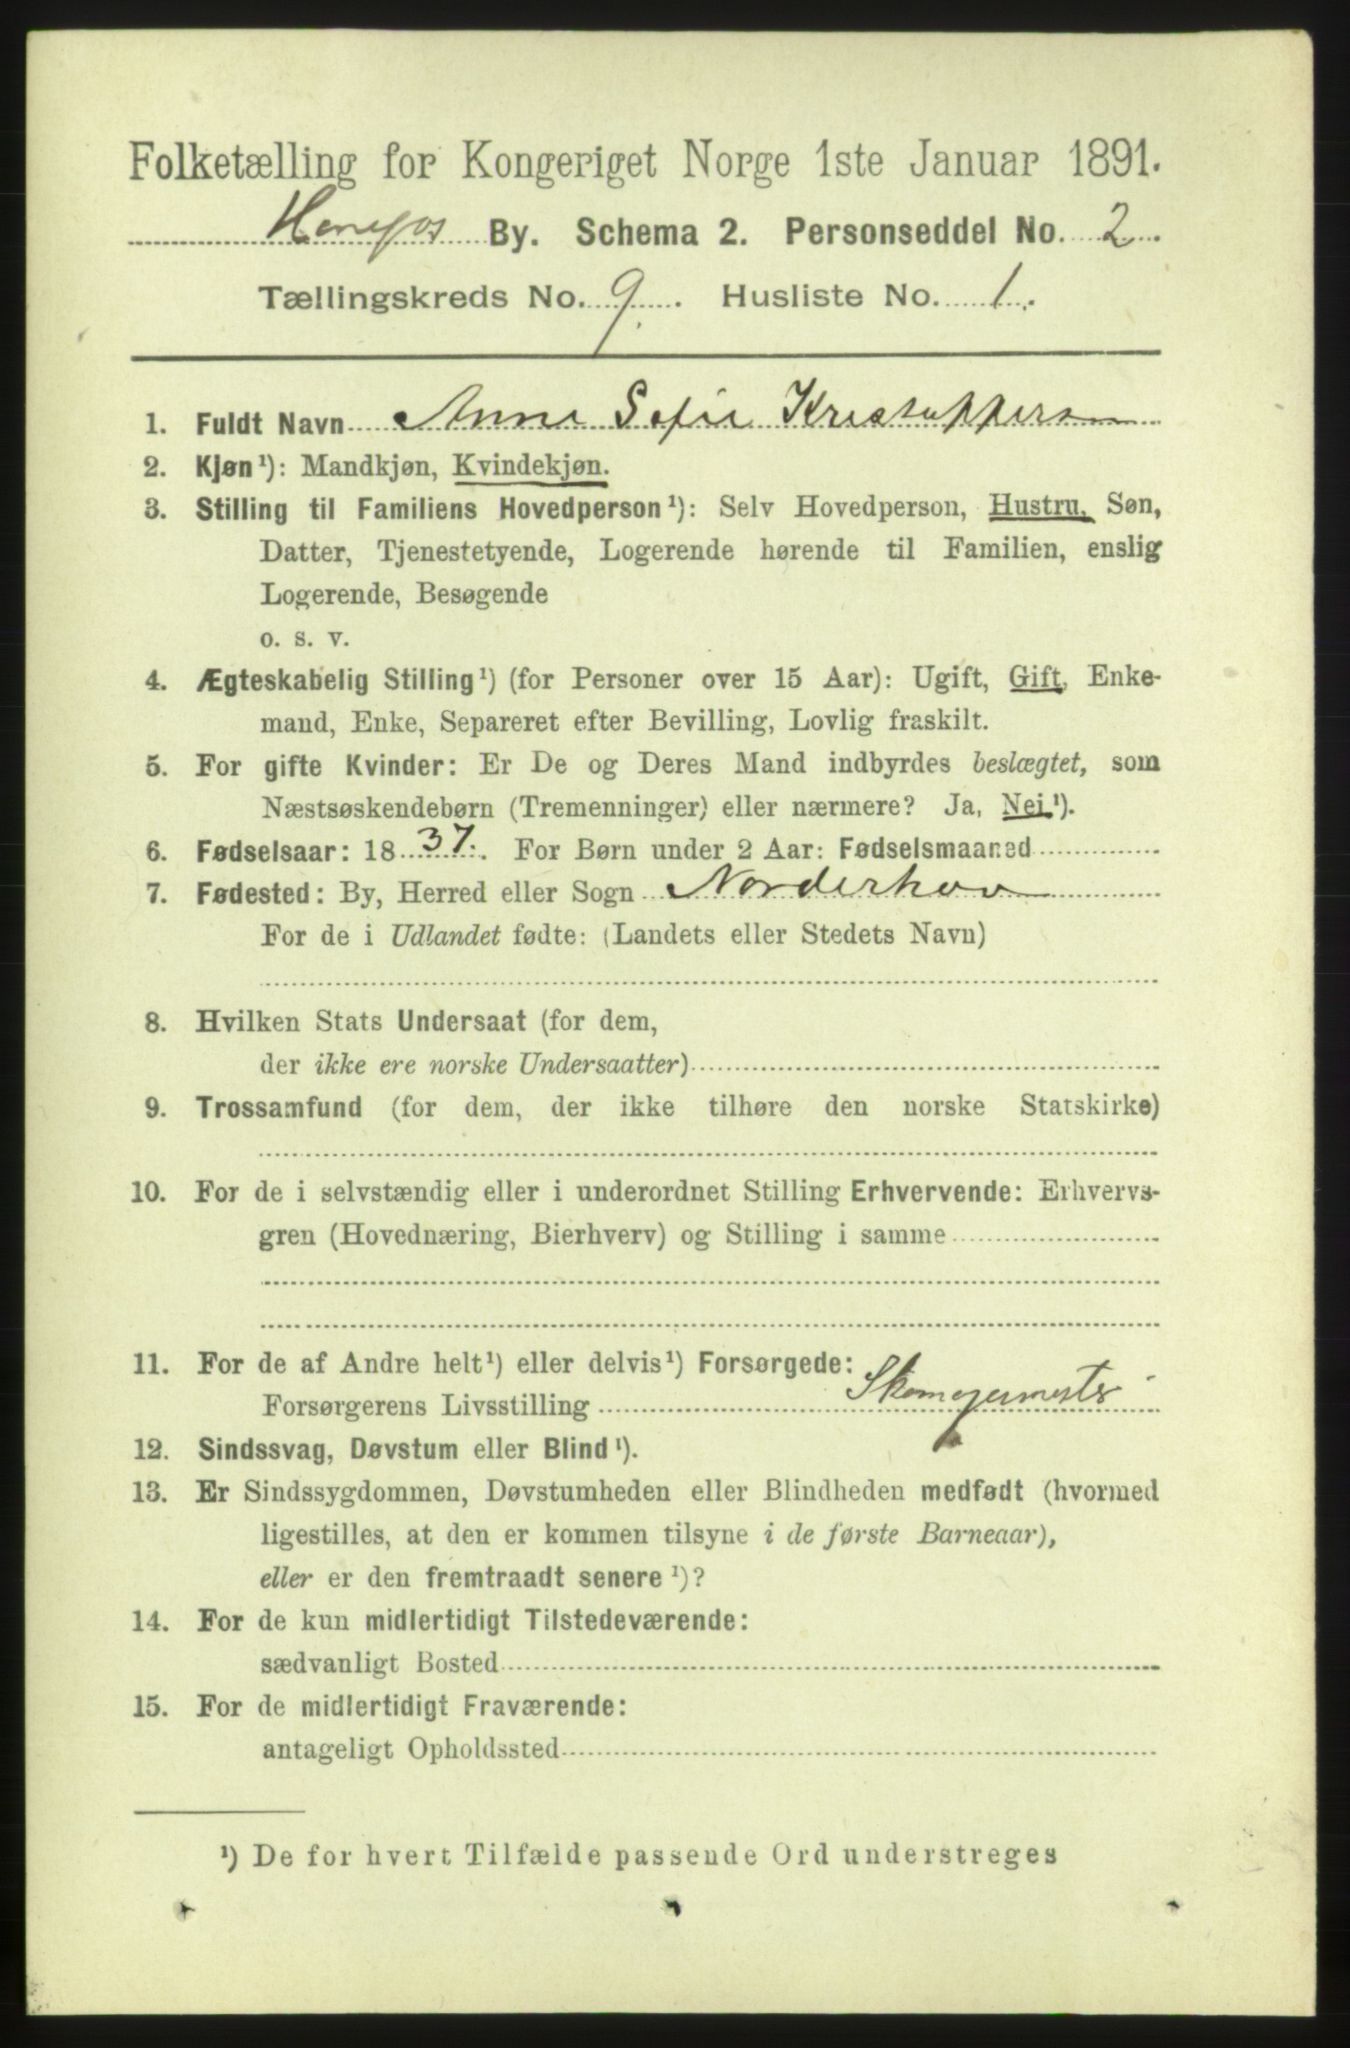 Folketælling for Kongeriget Norge 1ste Januar 1891.
Hønefos By. Schema 2. Personseddel No. 2.
Tællingskreds No. 9. Husliste No. 1.
1. Fuldt Navn Anne Sofie Kristoffersen
2. Kjøn¹): Mandkjøn, Kvindekjøn.
3. Stilling til Familiens Hovedperson¹): Selv Hovedperson, Hustru, Søn,
Datter, Tjenestetyende, Logerende hørende til Familien, enslig
Logerende, Besøgende
o. s. v.
4. Ægteskabelig Stilling¹) (for Personer over 15 Aar): Ugift, Gift, Enke-
mand, Enke, Separeret efter Bevilling, Lovlig fraskilt.
5. For gifte Kvinder: Er De og Deres Mand indbyrdes beslægtet, som
Næstsøskendebørn (Tremenninger) eller nærmere? Ja, Nei¹).
6. Fødselsaar: 1837. For Børn under 2 Aar: Fødselsmaaned
7. Fødested: By, Herred eller Sogn Norderhov
For de i Udlandet fødte: (Landets eller Stedets Navn)
8. Hvilken Stats Undersaat (for dem,
der ikke ere norske Undersaatter)
9. Trossamfund (for dem, der ikke tilhøre den norske Statskirke)
10. For de i selvstændig eller i underordnet Stilling Erhvervende: Erhvervs-
gren (Hovednæring, Bierhverv) og Stilling i samme
11. For de af Andre helt¹) eller delvis¹) Forsørgede:
Forsørgerens Livsstilling Skomagermester
12. Sindssvag, Døvstum eller Blind¹).
13. Er Sindssygdommen, Døvstumheden eller Blindheden medfødt (hvormed
ligestilles, at den er kommen tilsyne i de første Barneaar),
eller er den fremtraadt senere¹)?
14. For de kun midlertidigt Tilstedeværende:
sædvanligt Bosted
15. For de midlertidigt Fraværende:
antageligt Opholdssted
¹) De for hvert Tilfælde passende Ord understreges